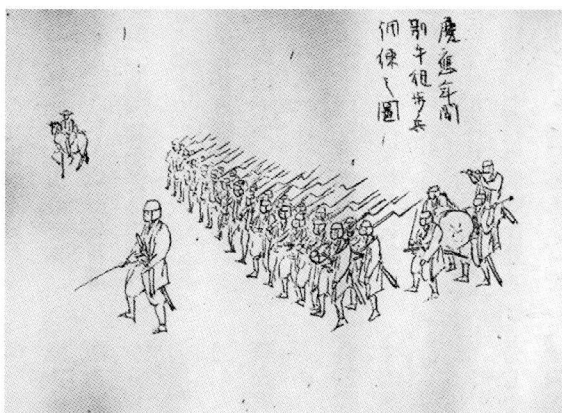 慶應年間
別手組歩兵
調練之圖